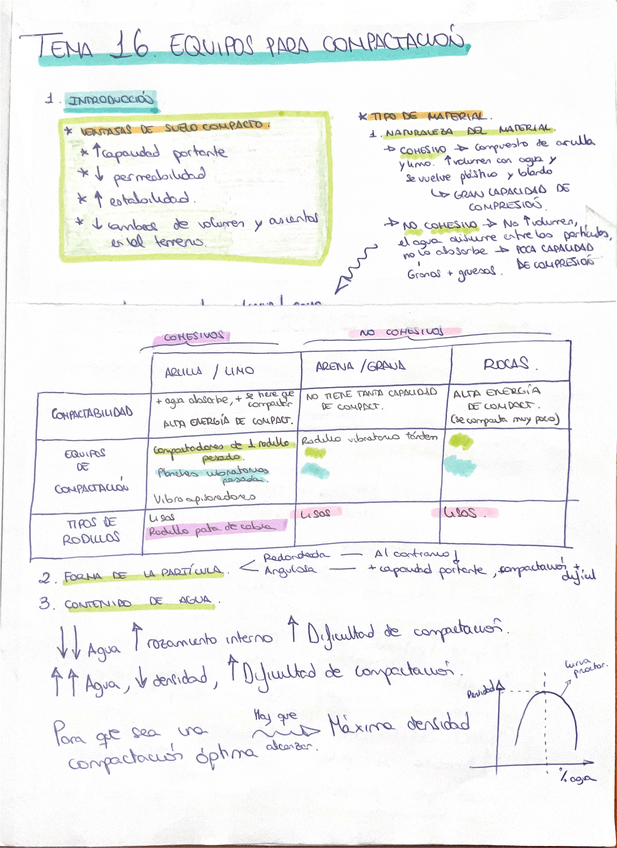 TEMA 16. EQUIPOS PARA COMPACTACIÓN
1. INTRODUCCIÓN
* VENTAJAS DE SUELO COMPACTO.
* ↑ capacidad portante
* ↓ permeabilidad
* ↑ estabilidad.
* ↓ cambios de volumen y asientos
en el terreno.
* TIPO DE MATERIAL.
1. NATURALEZA DEL MATERIAL.
→ COHESIVO → compuesto de arcilla
y limo. ↑ volumen con agua y
se vuelve plástico y blando
↳ GRAN CAPACIDAD DE
COMPRESIÓN.
→ NO COHESIVO → No ↑ volumen,
el agua discurre entre las partículas,
no la absorbe → POCA CAPACIDAD
DE COMPRESIÓN
Granos + gruesos.
COHESIVOS
NO COHESIVOS
ARCILLA / LIMO
ARENA / GRAVA
ROCAS.
COMPACTABILIDAD
+ agua absorbe, + se tiene que
compactar
ALTA ENERGÍA DE COMPACT.
NO TIENE TANTA CAPACIDAD
DE COMPACT.
ALTA ENERGÍA
DE COMPACT.
(se compacta muy poco)
EQUIPOS
DE
COMPACTACIÓN
Compactadores de 1 rodillo
pesado.
Planchas vibratorias
pesadas
Vibroapisonadores
Rodillo vibratorio tándem
TIPOS DE
RODILLOS
LISOS
Rodillo pata de cabra
LISOS
LISOS.
2. FORMA DE LA PARTÍCULA.
Redondeada — Al contrario ↓
Angulosa — + capacidad portante, compactación +
difícil
3. CONTENIDO DE AGUA.
↓↓ Agua ↑ rozamiento interno ↑ Dificultad de compactación.
↑↑ Agua, ↓ densidad, ↑ Dificultad de compactación.
Para que sea una
compactación óptima
Hay que
alcanzar.
Máxima densidad
Densidad
curva
proctor.
% agua